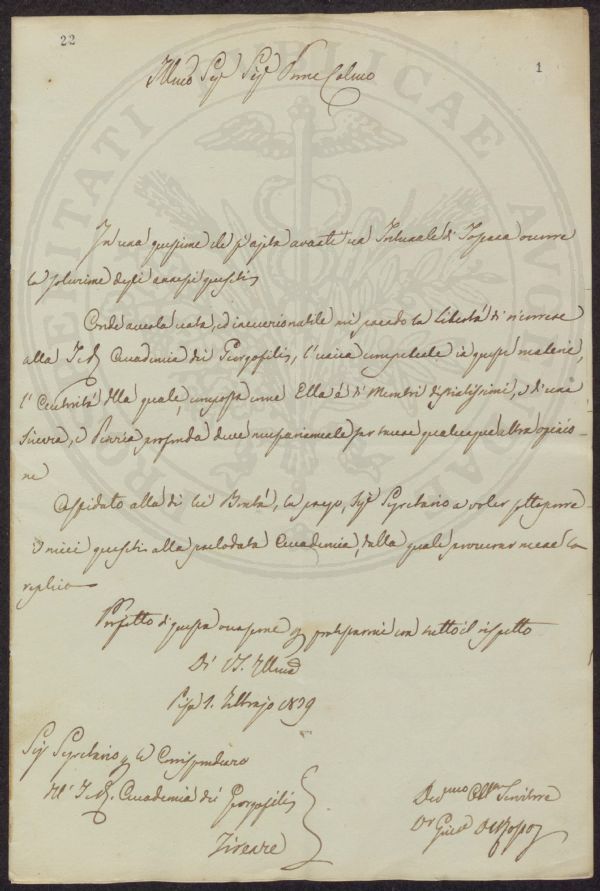 22
1
Illmo Sigr Sigr Prone Colmo
In una quistione che s'agita avanti un Tribunale di Toscana occorre
la soluzione degli annessi quesiti
Onde averla esatta, ed ineccezionabile mi prendo la libertà di ricorrere
alla I. e R. Accademia dei Georgofili, l'unica competente in queste materie,
l'Autorità della quale, composta come Ella è di Membri distintissimi, e di una
Teoria, e Pratica profonda deve necessariamente far tacere qualunque altra opinio-
ne
Affidato alla di lei Bontà, la prego, Sigr Segretario a voler sottoporre
i miei quesiti alla prelodata Accademia, dalla quale procurarmene la
replica
Profitto di questa occasione per protestarmi con tutto il rispetto
Di VS. Illma
Pisa 1. Febbrajo 1839
Sigr Segretario per le Corrispondenze
dell' I. e R. Accademia dei Georgofili
Firenze
Devmo Obbmo Servitore
Dr